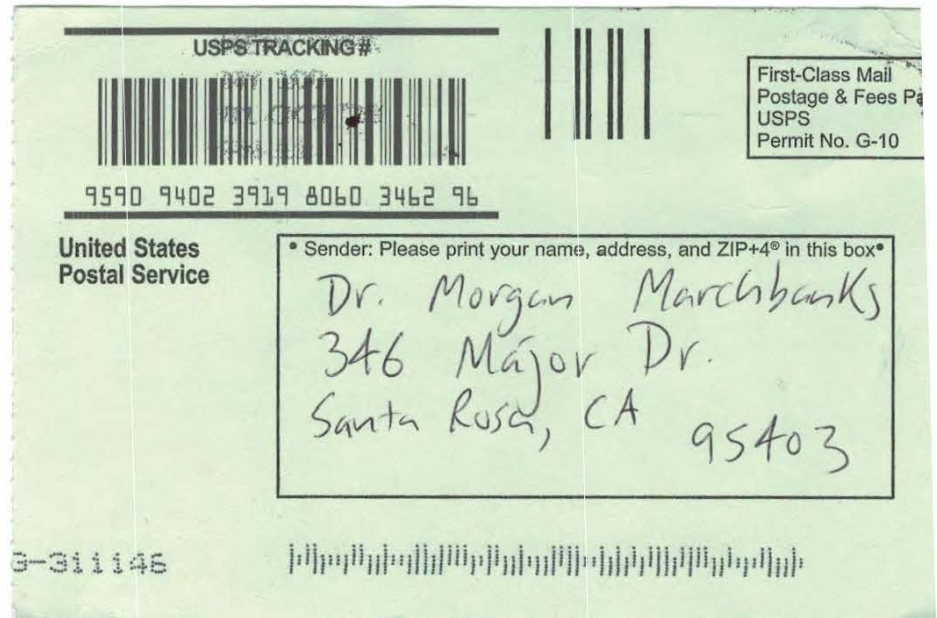 USPS TRACKING #
9590 9402 3919 8060 3462 96
First-Class Mail
Postage & Fees Pa
USPS
Permit No. G-10
United States
Postal Service
• Sender: Please print your name, address, and ZIP+4® in this box•
Dr. Morgan Marchbanks
346 Major Dr.
Santa Rosa, CA 95403
3-311146